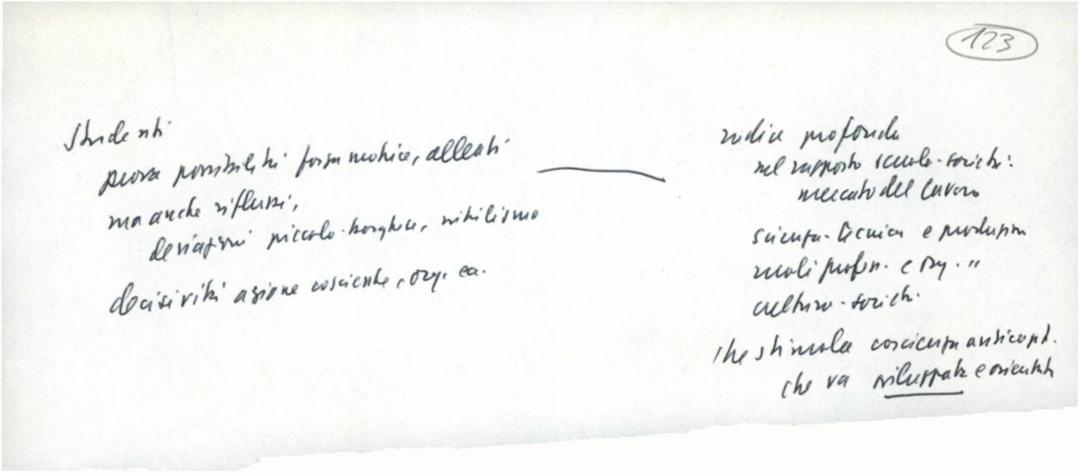 123
Studenti
nuove possibilità forza motrice, alleati
ma anche riflussi,
deviazioni piccolo-borghesi, nihilismo
decisività azione cosciente, org. ca.
radice profonda
nel rapporto scuola-società:
mercato del lavoro
scienza-tecnica e produzione
ruoli profess. e org. "
cultura-società
che stimola coscienza anticapit.
che va sviluppata e orientata